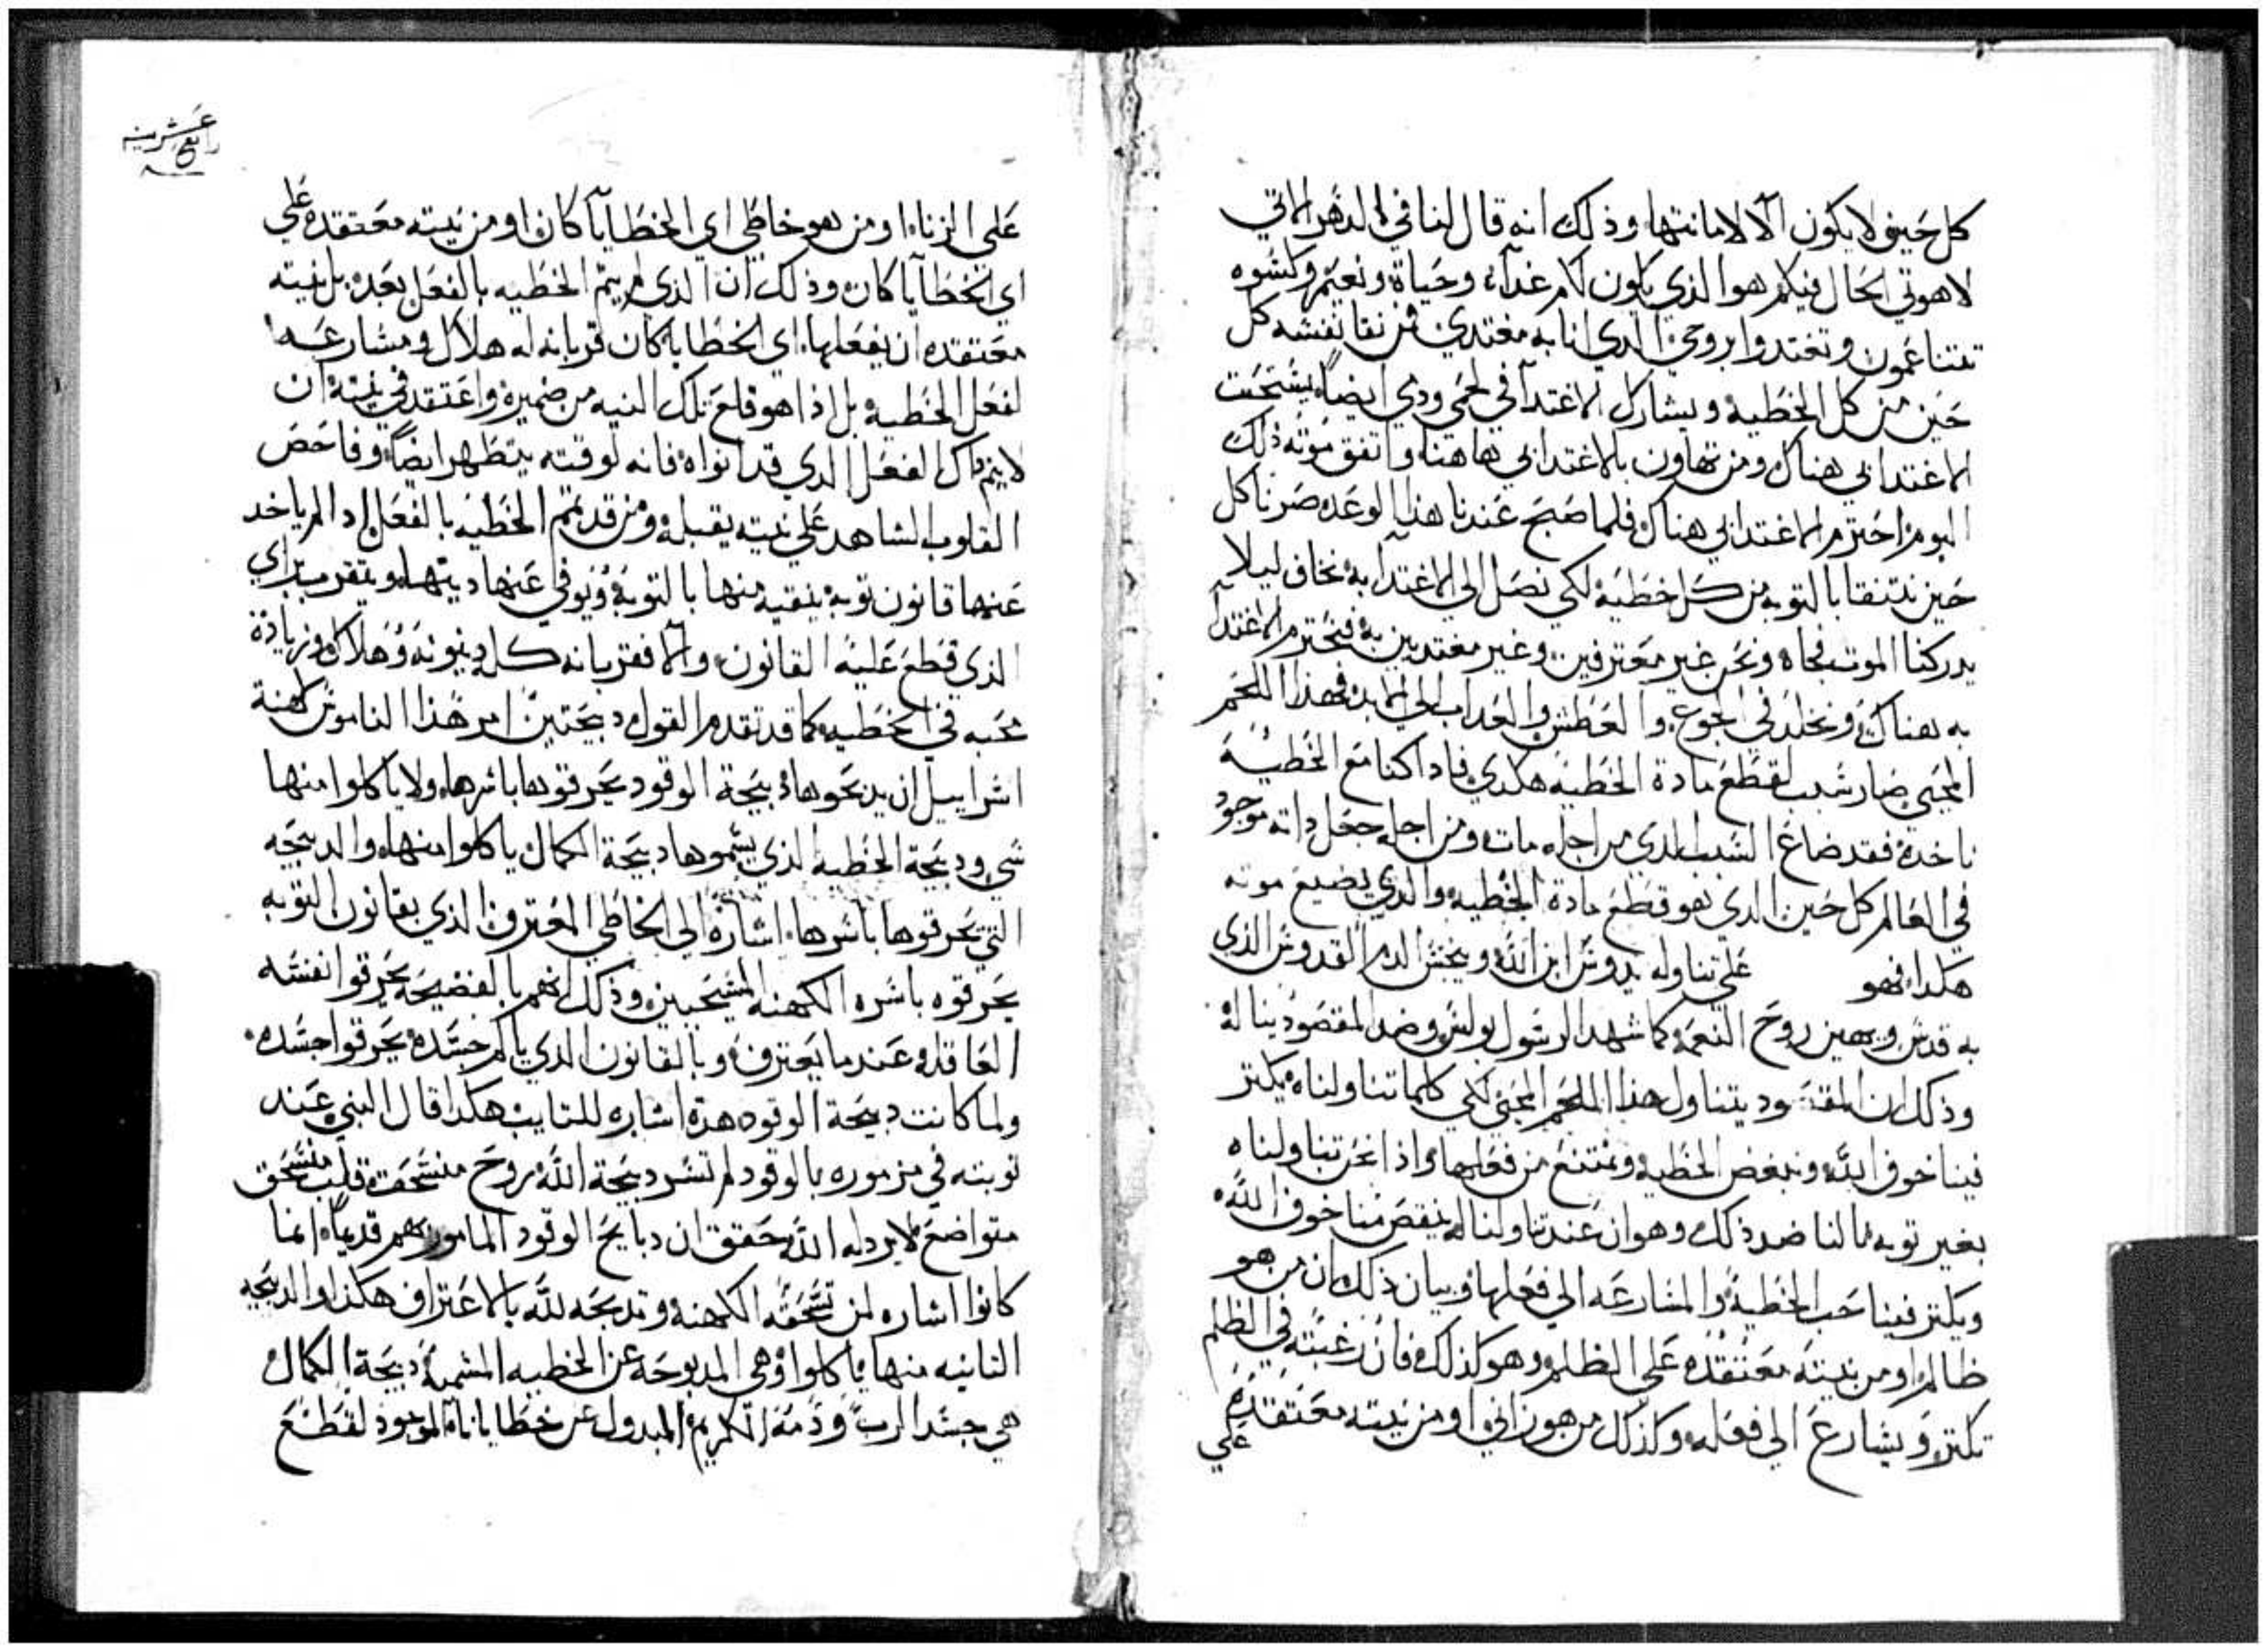 كل حين لا يكون الا لامانتها وذلك انه قال لنا في الدهر الاتي
لاهوتي الحال فيكم هوا الذي يكون لكم غداء وحياة ونعيم وكسوه
تتناعمون وتغتدوا بروحي الدي انا به مغتدي فمن نقا نفسه كل
حين من كل الخطية ويشارك الاغتدا في لحمي ودمي ايضاً يستحق
الاغتدا بي هناك ومن تهاون بالاغتدا بي هاهنا واتفق موته دلك
اليوم احترم الاغتدا بي هناك فلما صح عندنا هدا الوعد صرنا كل
حين نتنقا بالتوبه من كل خطية لكي نصل الي الاغتدا به نخاف ليلا
يدركنا الموت فجاه ونحن غير معترفين وغير مغتديين به فنحترم الاغتدا
به هناك ونخلد في الجوع والعطش والعداب الي الابد فهذا اللحم
المحيي صار سبب لقطع مادة الخطية هكدي فاداكنا مع الخطية
ناخده فقد ضاع السبب الدي من اجله مات ومن اجله جعل داته موجود
في العالم كل حين الدي هو قطع مادة الخطيه والدي يضيع موته
هكدا فهو علي تناوله يدوس ابن الله وينجس الدم القدوس الذي
به قدس ويهين روح النعمه كما شهد الرسول بولس وضد المقصود يناله
وذلك ان المقصود يتناول هذا اللحم المحيي لكي كلما تناولناه يكتر
فينا خوف الله ونبغض الخطيه ونمتنع من فعلها واذا نحن تناولناه
بغير توبه نالنا ضد ذلك وهو ان عند تناولنا له ينقص منا خوف الله
ويكتر فينا حب الخطية والمسارعه الي فعلها وبيان ذلك ان من هو
ظالم او من نيته معتقده علي الظلم وهو كذلك فان رغبته في الظلم
تكتر ويسارع الي فعله وكذلك من هو زاني او من نيته معتقده
علي
رابع عشرينه
علي الزناء او من هو خاطي اي الخطايا كان او من نيته معتقده علي
اي الخطايا كان وذلك ان الذي لم يتم الخطيه بالفعل بعد بل نيته
معتقده ان يفعلها اي الخطايا كان قربانه له هلاك ومسارعه
لفعل الخطية بل اذا هو قلع تلك النيه من ضميره واعتقد في نيته ان
لا يتم داك الفعل الدي قد انواه فانه لوقته يتطهر ايضاً وفاحص
القلوب الشاهد علي نيته يقبله ومن قد تمم الخطيه بالفعل اد الم ياخد
عنها قانون توبه ينقيه منها بالتوبة ويوفي عنها ديتها ويتقرب براي
الذي قطع عليه القانون والا فقربانه كله دينونة وهلاك وزيادة
محبه في الخطيه كما قد تقدم القول دبيحتين امر هذا الناموس كهنة
اسراييل ان يدبحوها دبيحة الوقود يحرقوها باسرها ولا ياكلوا منها
شي ودبيحة الخطية الذي يسموها دبيحة الكمال ياكلوا منها والدبيحه
التي يحرقوها باسرها اشارة الي الخاطي المعترف الذي بقانون التوبه
يحرقوه باسره الكهنه المسيحيين وذلك انهم بالفضيحة يحرقوا نفسه
العاقله عند ما يعترف وبالقانون الدي ياكم جسده يحرقوا جسده
ولما كانت دبيحة الوقود هده اشاره للتايب هكدا قال النبي عند
توبته في مزموره بالوقود لم تسر دبيحة الله روح منسحقة قلب منسحق
متواضع لا يردله الله حقق ان دبايح الوقود المامور بهم قديماً انما
كانوا اشاره لمن تسحقه الكهنه وتدبحه لله بالاعتراف هكذا والدبيحه
التانيه منها ياكلوا وهي المدبوحه عن الخطيه المسميه دبيحة الكمال
هي جسد الرب ودمه الكريم المبدول عن خطايانا الموجود لقطع